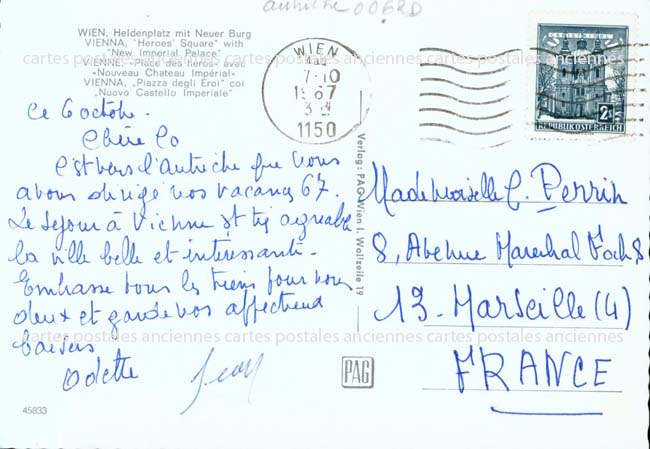 autriche 0062D
WIEN, Heldenplatz mit Neuer Burg
VIENNA, "Heroes' Square" with
"New Imperial Palace"
VIENNE, «Place des héros» avec
«Nouveau Chateau Impérial»
VIENNA, „Piazza degli Eroi" coi
„Nuovo Castello Imperiale"
WIEN
7-10
1967
1150
CHRISTKINDL
2S
REPUBLIK ÖSTERREICH
cartes postales anciennes cartes postales anciennes cartes postales anciennes
Ce 6 octobre.
Chère Co
C'est vers l'Autriche que nous
avons dirigé nos vacances 67.
Le séjour à Vienne est très agréable
la ville belle et intéressante.
Embrasse tous les tiens pour nous
deux et garde nos affectueux
baisers
Odette Jean
Verlag: PAG, Wien I, Wollzeile 19
Mademoiselle C. Perrin
8, Avenue Marechal Foch 8
13. Marseille (4)
FRANCE
cartes postales anciennes cartes postales anciennes cartes postales anciennes
PAG
45833